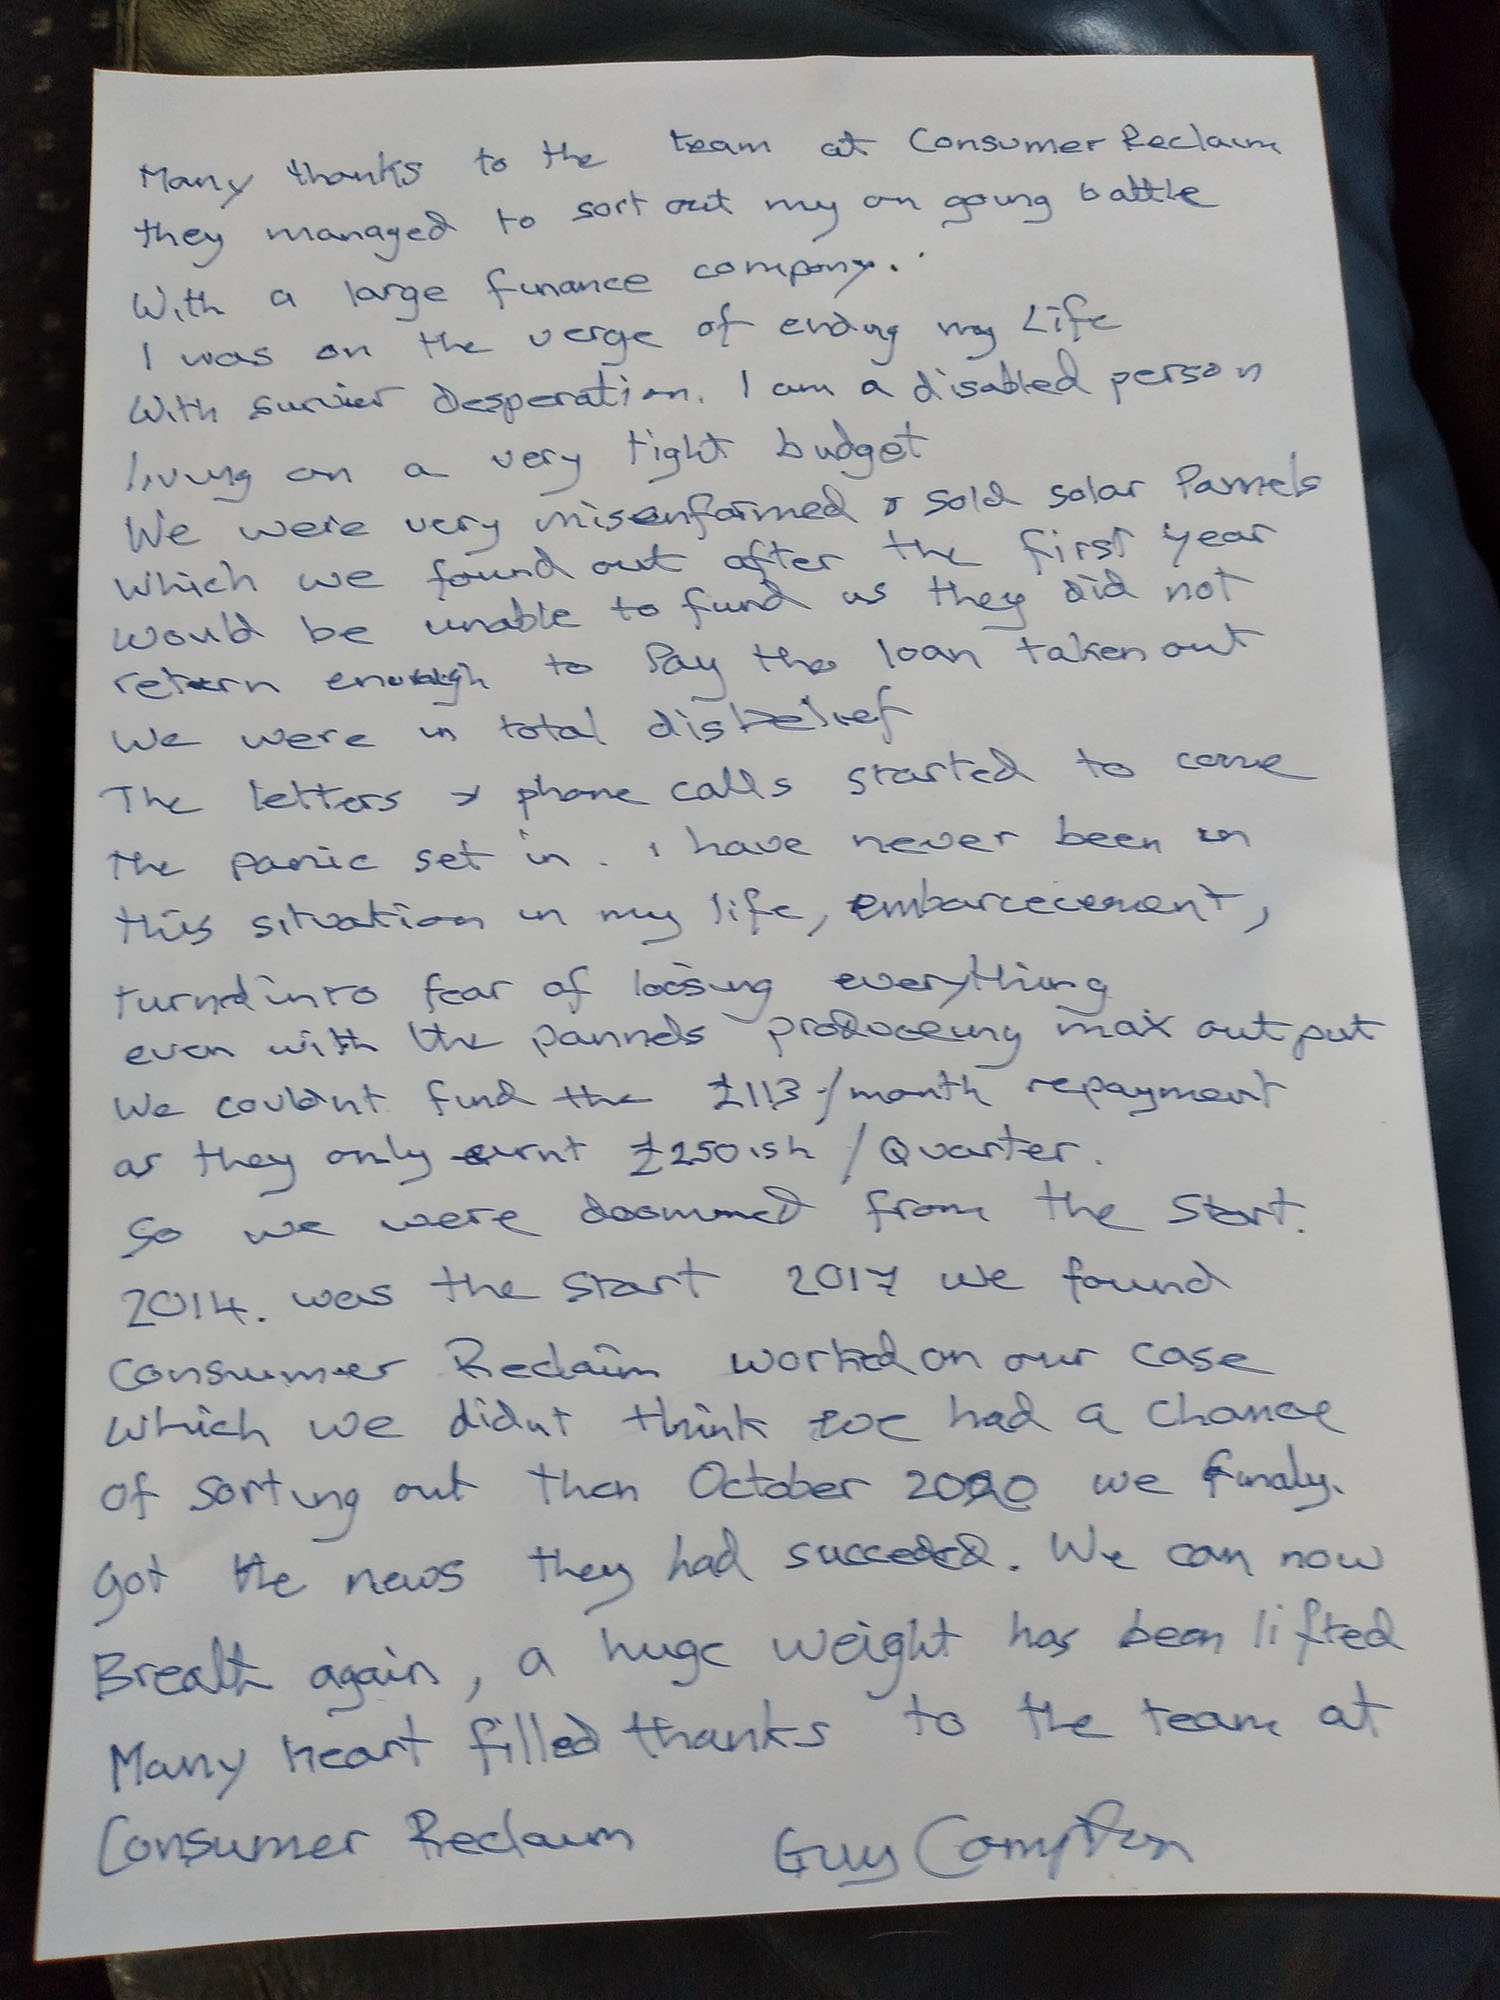 Many thanks to the team at Consumer Reclaim
they managed to sort out my on going battle
With a large finance company.
I was on the verge of ending my Life
With desperation. I am a disabled person
living on a very tight budget
We were very misenformed & sold solar Pannels
which we found out after the first year
would be unable to fund as they did not
return enough to Pay the loan taken out
We were in total disbelief
The letters & phone calls started to come
the panic set in. I have never been in
this situation in my life, embarcecement,
turned into fear of loosing everything
even with the pannels produceing max output
We couldnt fund the £113/month repayment
as they only eurnt £250ish / Quarter.
So we were doommed from the start.
2014. was the start 2017 we found
Consumer Reclaim worked on our case
which we didnt think we had a chance
of sorting out then October 2020 we finaly.
Got the news they had succeded. We can now
Breath again, a huge weight has been lifted
Many heart filled thanks to the team at
Consumer Reclaim Guy Compton